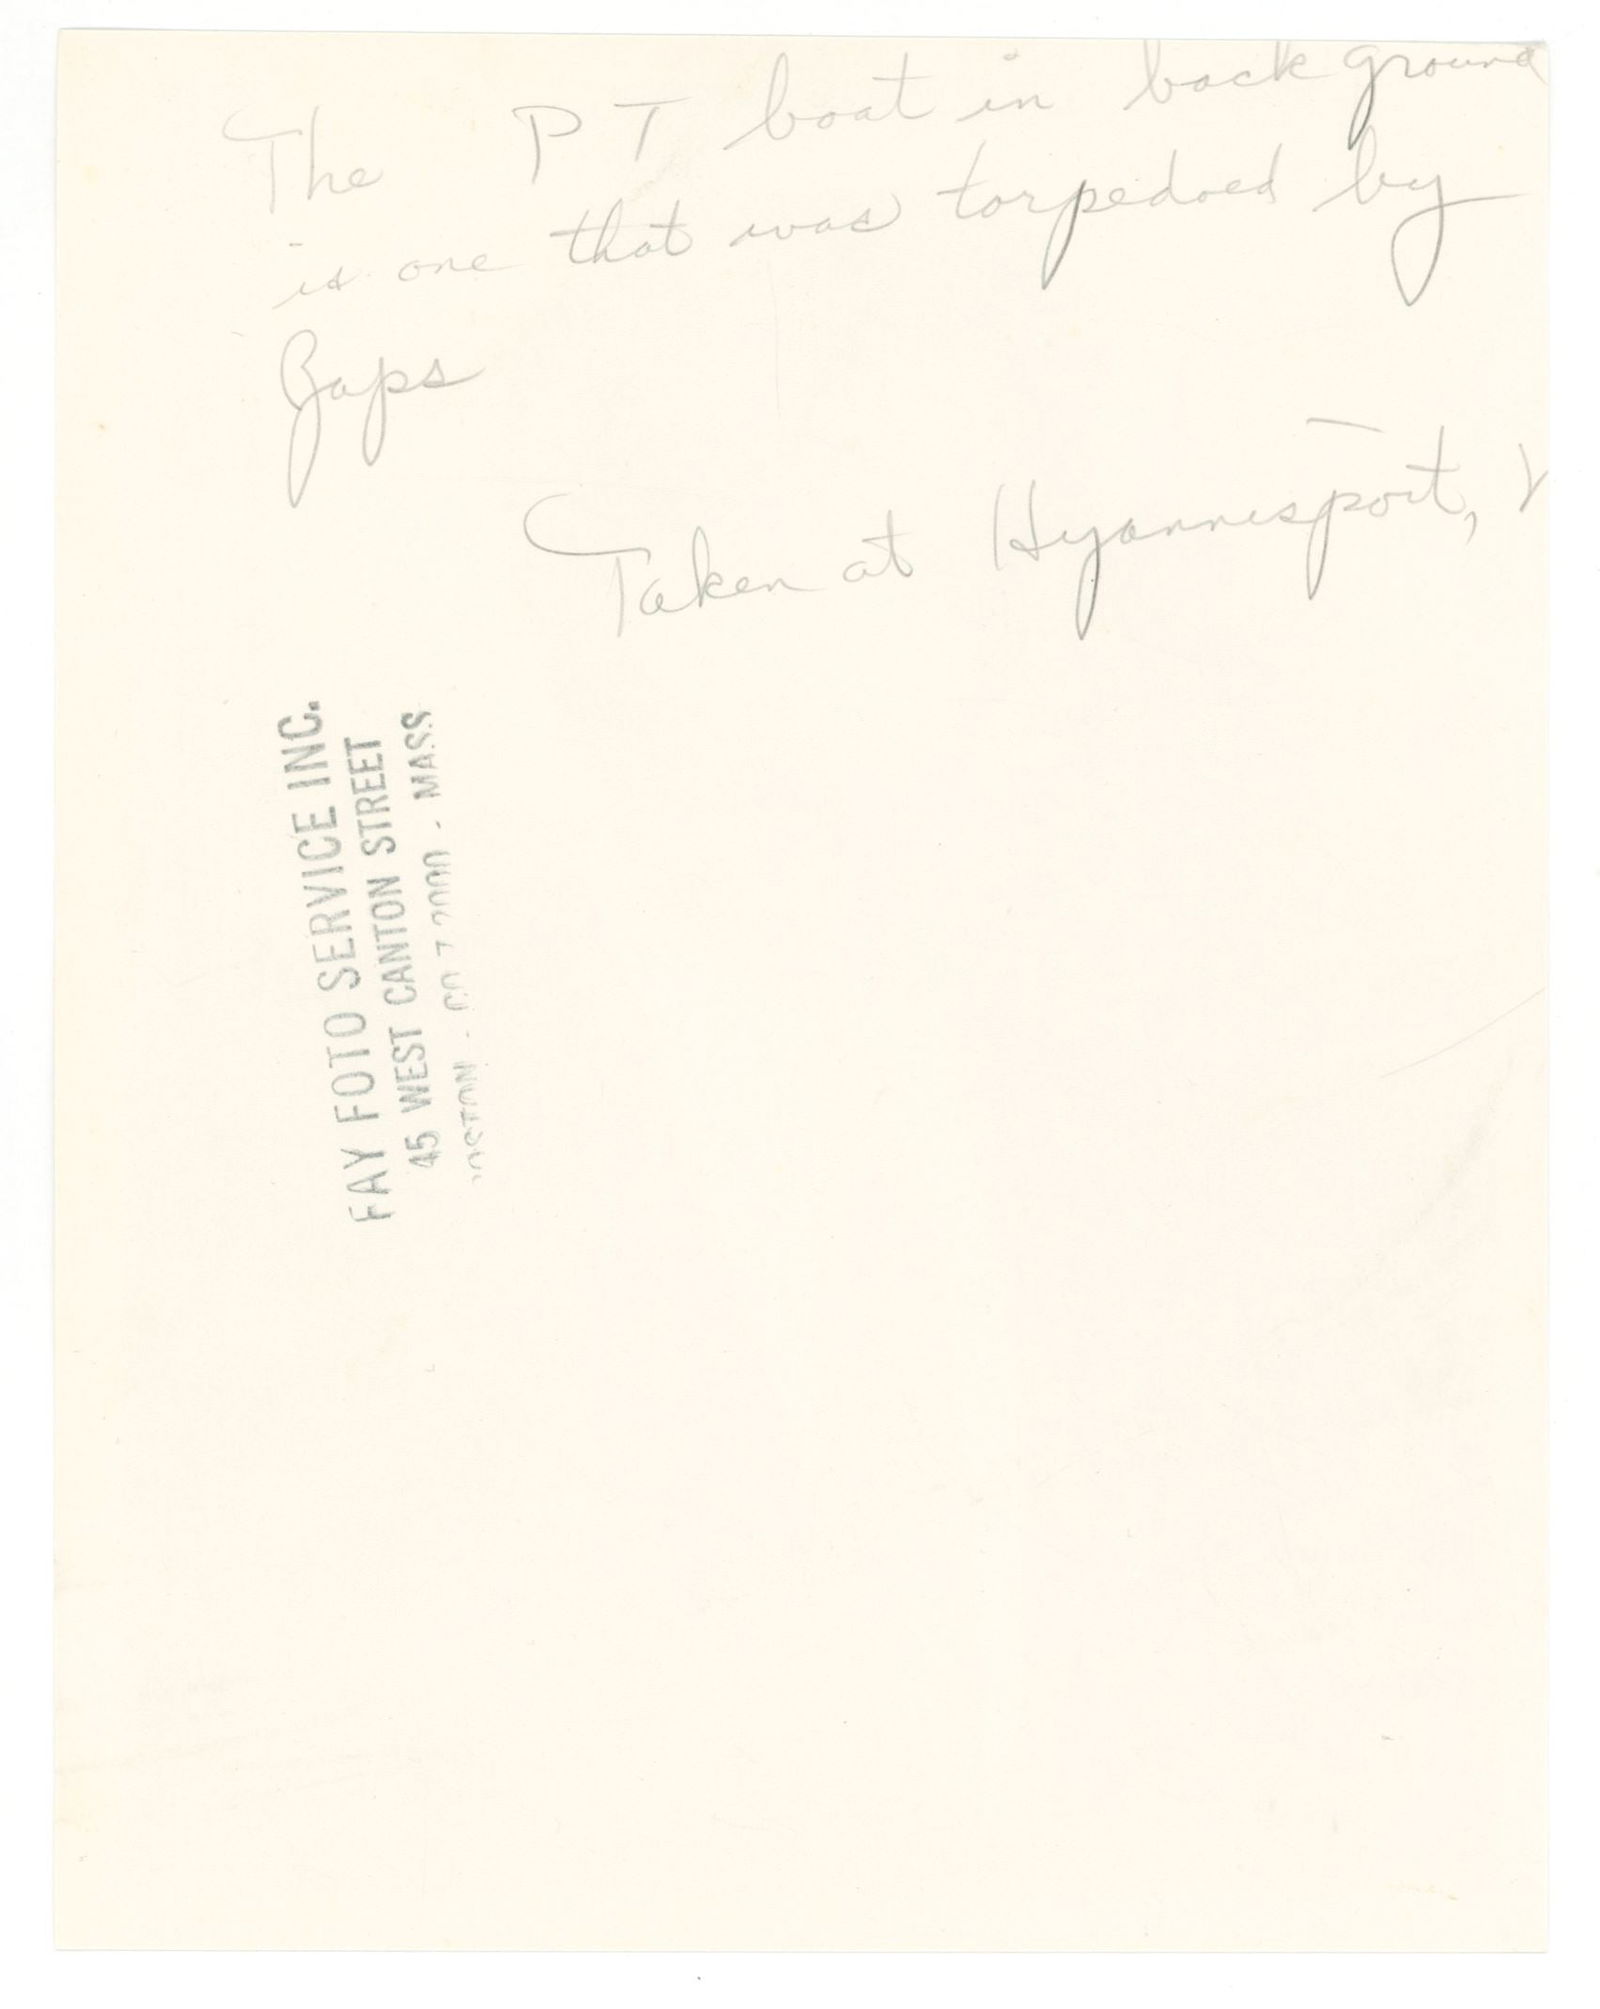 The PT boat in background
is one that was torpedoed by
Japs
Taken at Hyannisport,
FAY FOTO SERVICE INC.
45 WEST CANTON STREET
BOSTON - CO 7 2000 - MASS